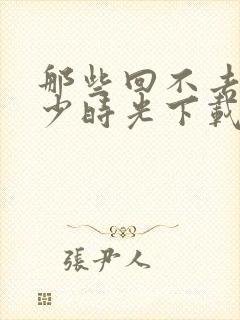 那些回不去
少時光下載
張尹人